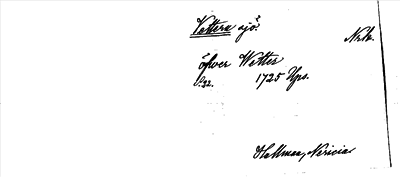 Vattern sjö.
Nrk.
öfver Wetter
S. 32. 1725 Ups.
Hallman, Nericia